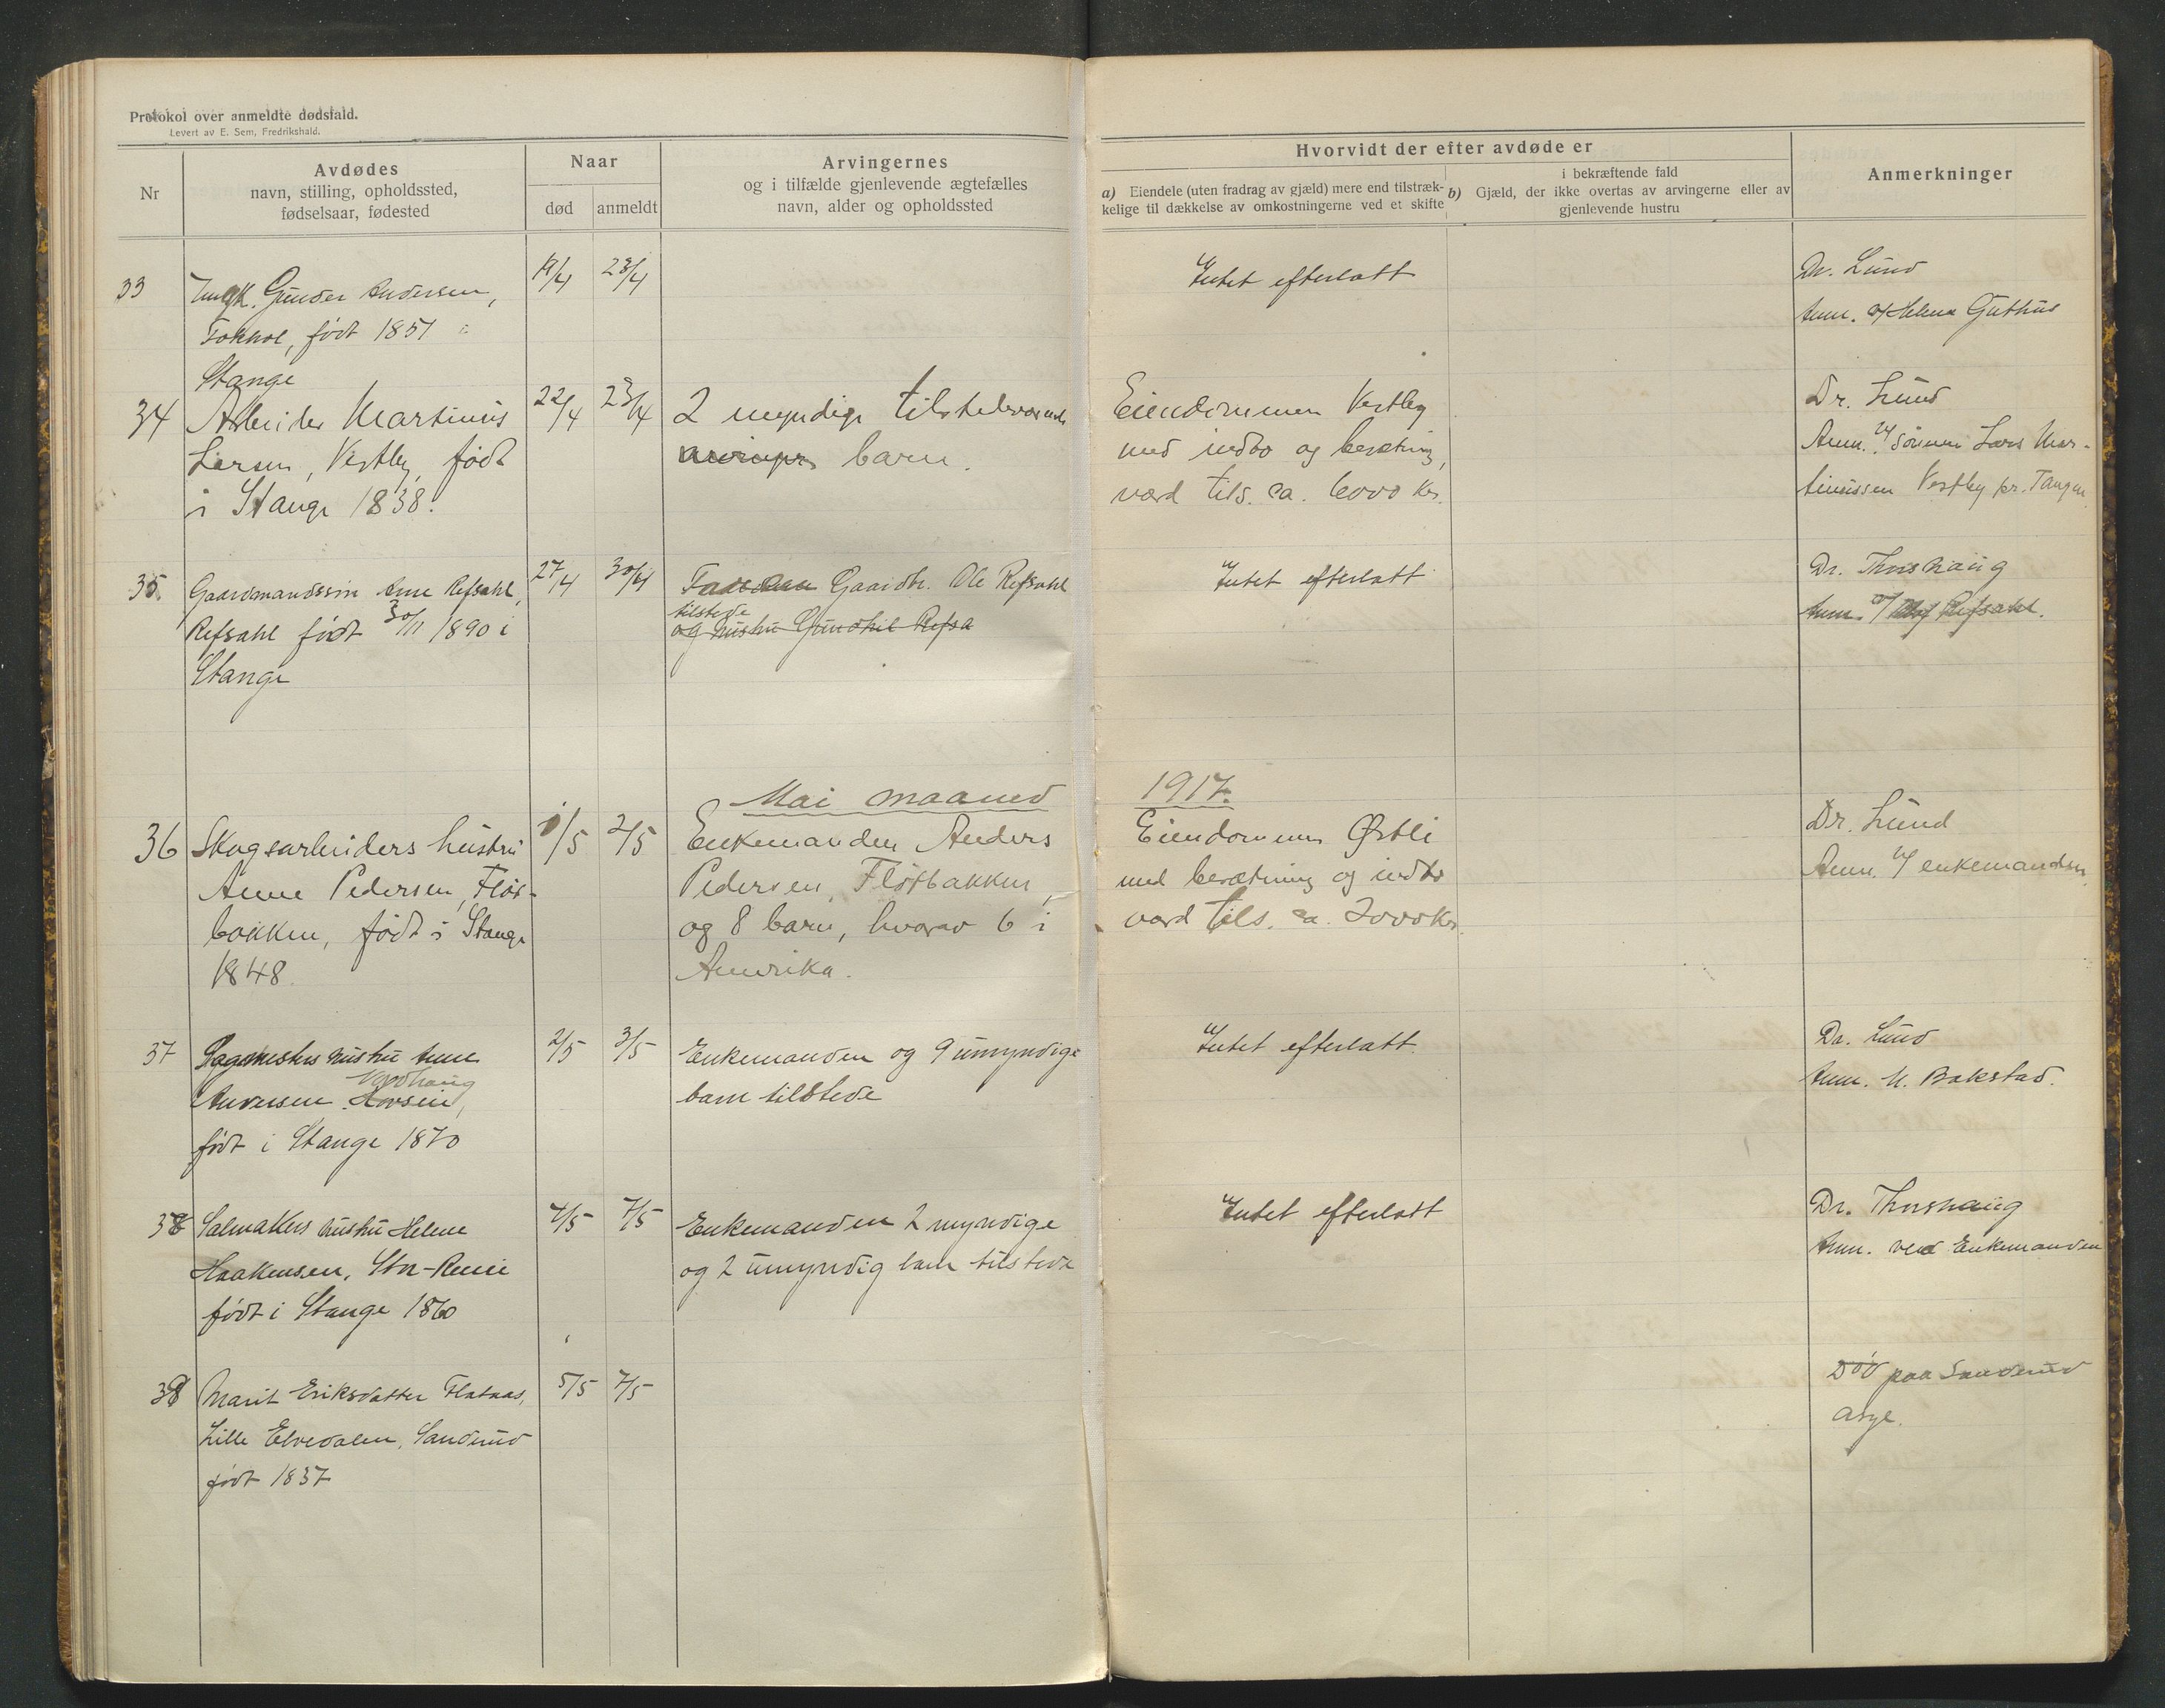 Protokol over anmeldte dødsfald.
Levert av E. Sem, Fredrikshald.
Nr
Avdødes
navn, stilling, opholdssted,
fødselsaar, fødested
Naar
død
anmeldt
Arvingernes
og i tilfælde gjenlevende ægtefælles
navn, alder og opholdssted
Hvorvidt der efter avdøde er
a) Eiendele (uten fradrag av gjæld) mere end tilstræk-
kelige til dækkelse av omkostningerne ved et skifte
i bekræftende fald
b) Gjæld, der ikke overtas av arvingerne eller av
gjenlevende hustru
Anmerkninger
33
Ungk. Gunder Andersen,
født 1851 i
Stange
19/4
23/4
Intet efterlatt
Dr. Lund
Anm. af Helena Guthus
34
Arbeider Martinius
Larsen, Vestby, født
i Stange 1838.
22/4
23/4
2 myndige tilstedeværende
barn.
Eiendommen Vestby
med indbo og besætning,
værd tils. ca. 6000 Kr.
Dr. Lund
Anm. v/ sønnen Lars Mar-
tinussen Vestby pr. Tangen
35
Gaardmandssøn Refsahl,
Refsahl født 30/11 1890 i
Stange
27/4
30/4
Faderen Gaardbr. Ole Refsahl
tilstede
og hustru Gundhil Refsa
Intet efterlatt
Dr. Thorshaug
Anm. v/ Refsahl.
Mai maaned
1917.
36
Skogsarbeiders hustru
Anne Pedersen, Fløt-
bakken, født i Stange
1848.
1/5
2/5
Enkemanden Anders
Pedersen, Fløtbakken,
og 8 barn, hvorav 6 i
Amerika.
Eiendommen Østli
med besætning og indbo
værd tils. ca. 2000 Kr.
Dr. Lund
Anm. v/ enkemanden
37
Sagmesters hustru Anne
Nordhaug
Andersen
født i Stange 1870
2/5
3/5
Enkemanden og 9 umyndige
barn tilstede
Intet efterlatt.
Dr. Lund
Anm. M. Bakstad.
38
Salmakers hustru Helene
Haakensen,
født i Stange 1860
4/5
7/5
Enkemanden 2 myndige
og 2 umyndig barn tilstede
Intet efterlatt
Dr. Thorshaug
Anm. ved Enkemanden
39
Marit Eriksdatter Flataas,
Lille Elvedalen, Sanderud
født 1837
5/5
7/5
Død paa Sanderud
Asyl.